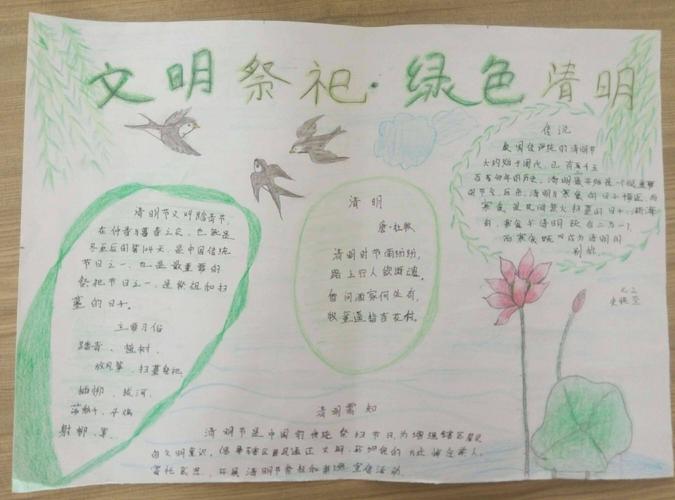 文明祭祀·绿色清明
清明节又叫踏青节,
在仲春与暮春之交,也就是
冬至后的第104天,是中国传统
节日之一,也是最重要的
祭祀节日之一,是祭祖和扫
墓的日子。
主要习俗
踏青、植树、
放风筝、扫墓祭祀、
插柳、拔河、
荡秋千、
射柳、
清明
唐·杜牧
清明时节雨纷纷,
路上行人欲断魂。
借问酒家何处有,
牧童遥指杏花村。
传说
我国传统的清明节
大约始于周代,已有二千五
百多年的历史。清明最开始是一个很重要
的节气,清明与寒食的日子接近,而
寒食是民间禁火扫墓的日子,渐渐
的,寒食与清明就合二为一了,
而寒食既成为清明的
别称
清明需知
清明节是中国的传统祭扫节日,为增强辖区居民
的文明意识,
寄托哀思,开展清明节祭祀和宣传活动。